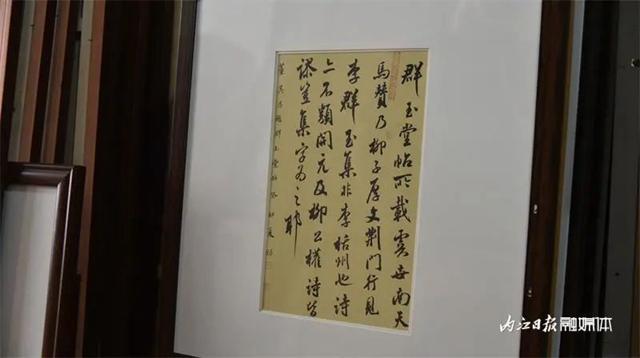 群玉堂帖所載虞世南天
馬贊乃柳子厚文荊門行見
李群玉集非李栝州也詩
亦不類開元及柳公權詩皆
謬豈集字為之耶
内江日报融媒体